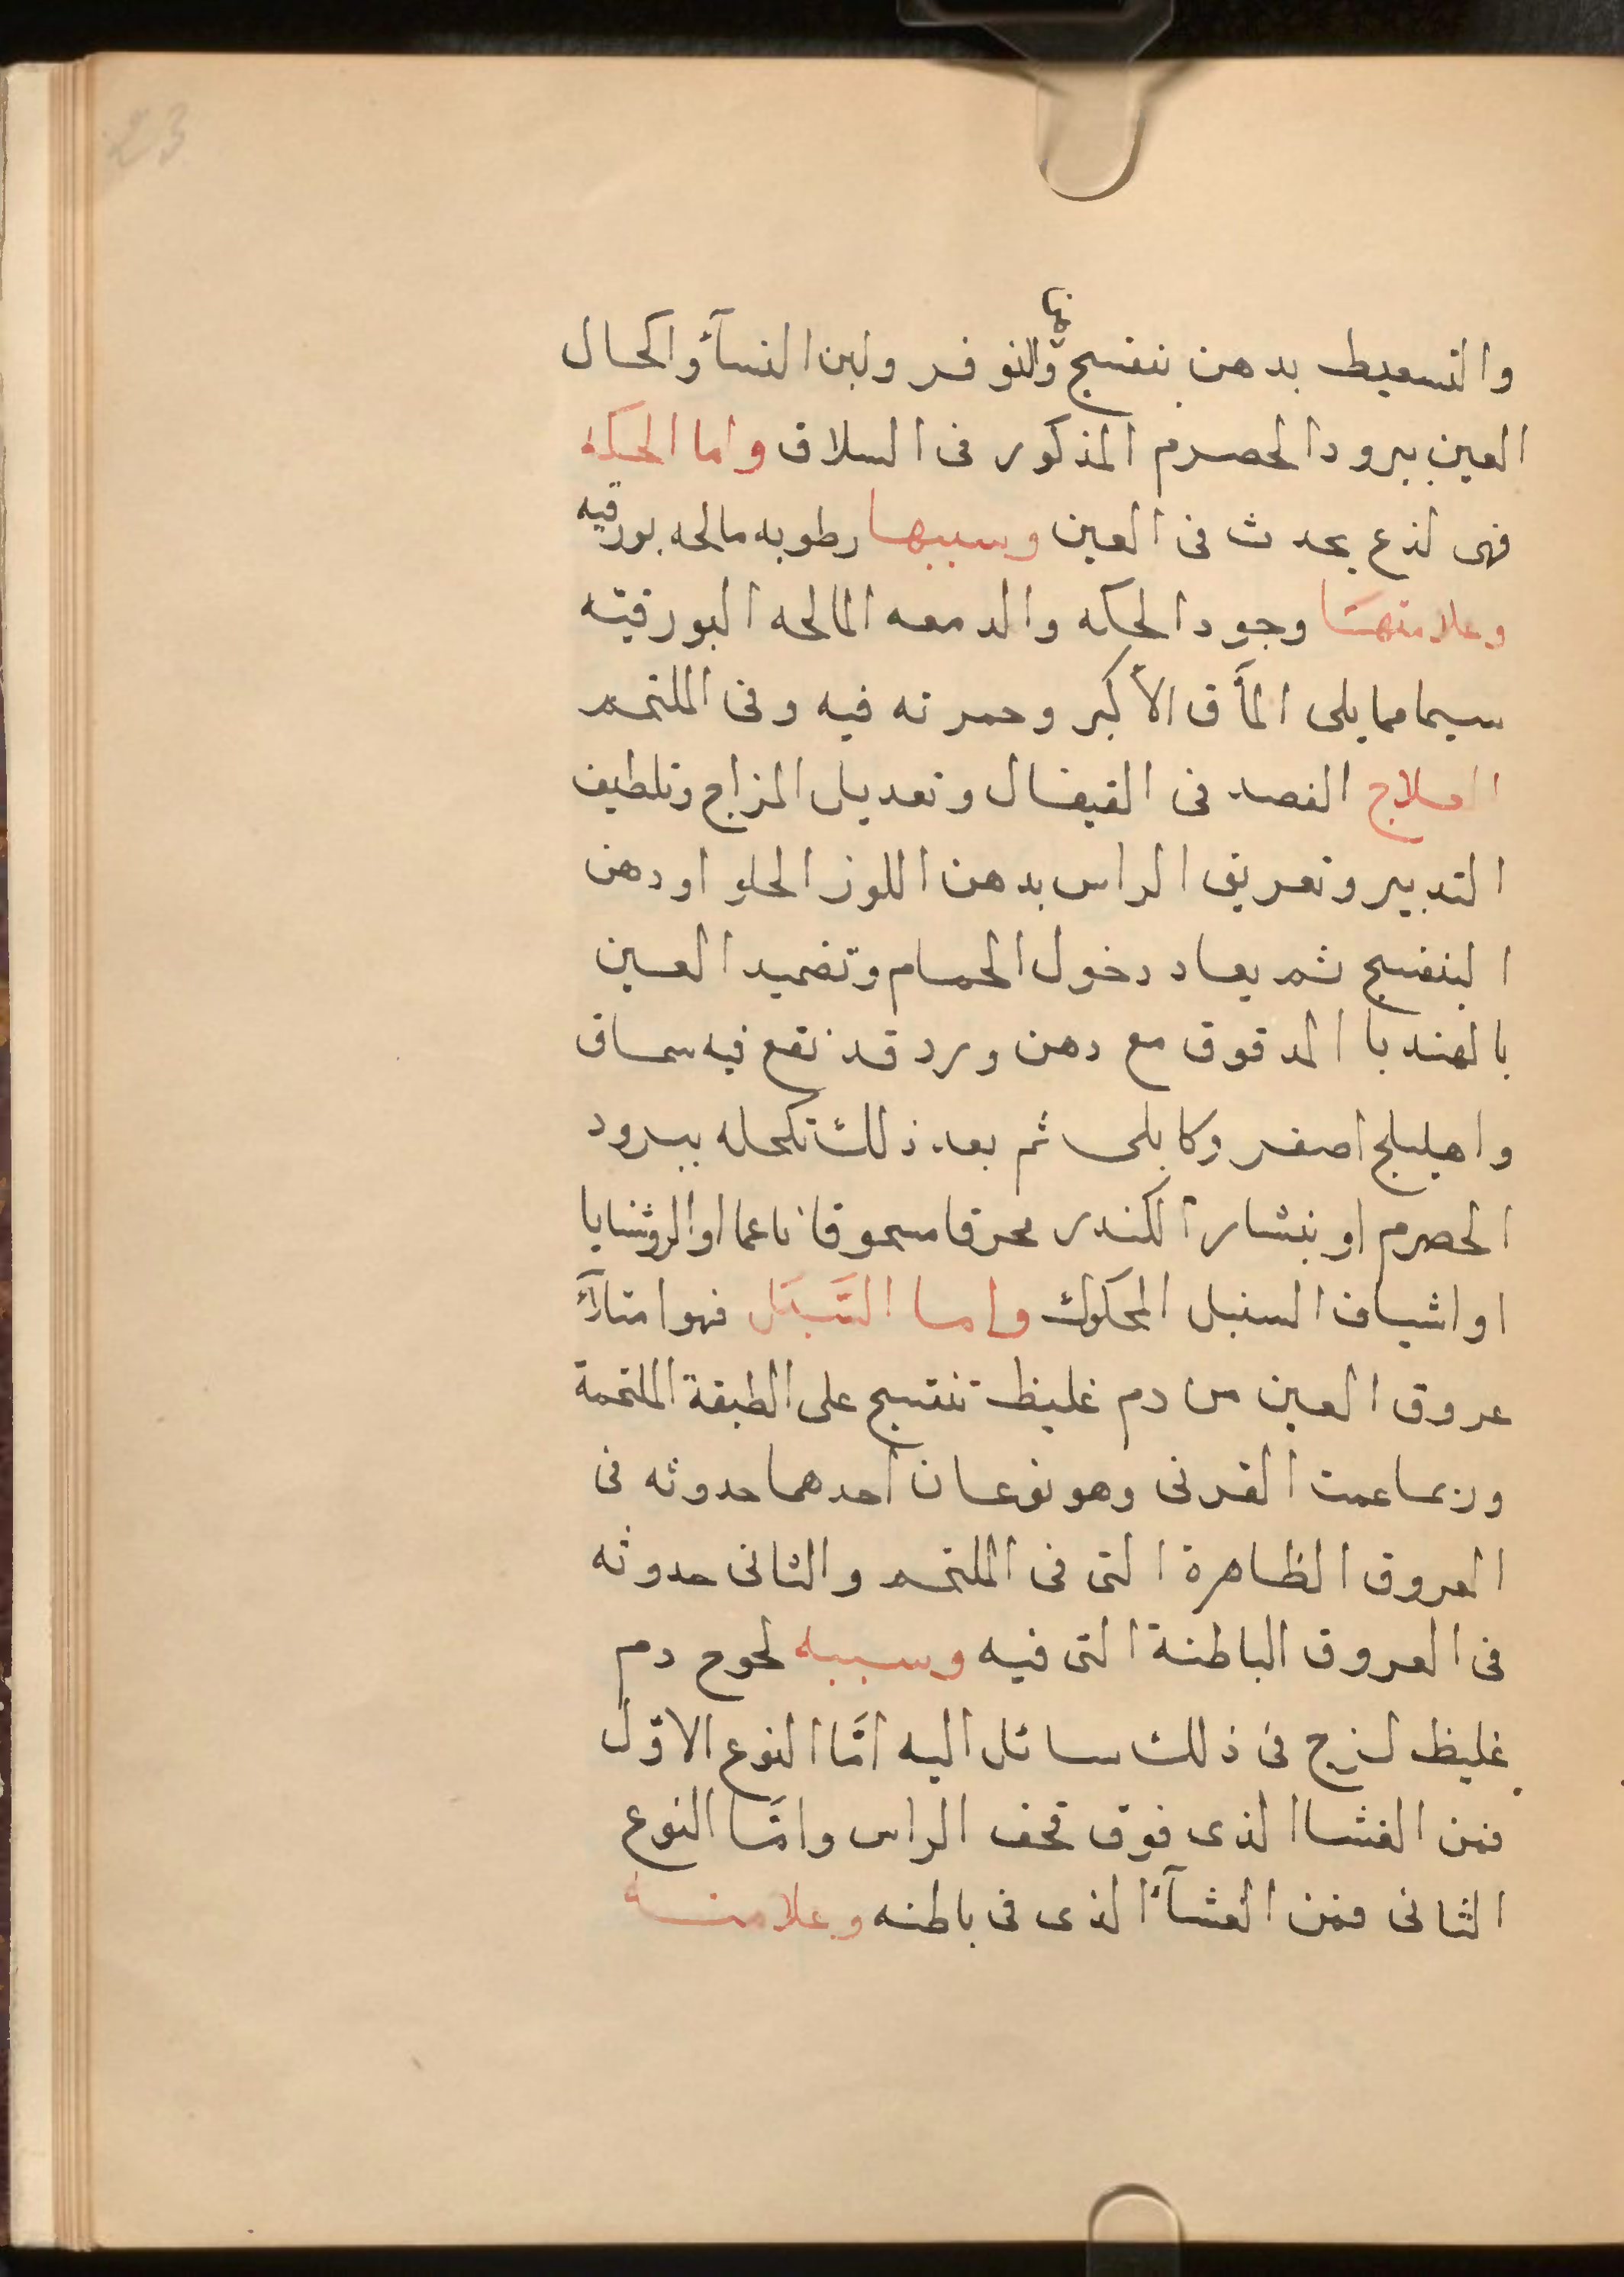 23
والتسعيط بدهن بنفسج والنوفر ولبن النسآء واكحال
العين ببرود الحصرم المذكور فى السلاق واما الحكة
فهى لذع يحدث فى العين وسببها رطوبه مالحه بورقيه
وعلامتها وجود الحكه والدمعه المالحه البورقيّه
سيما مما يلى المأق الأكبر وحمرته فيه وفى الملتحم
العلاج الفصد فى القيفال وتعديل المزاج وتلطيف
التدبير وتعريق الراس بدهن اللوز الحلو او دهن
البنفسج ثم يعاد دخول الحمام وتضميد العين
بالهندبا المدقوق مع دهن ورد قد نقع فيه سماق
واهليلج اصفر وكابلى ثم بعد ذلك تكحله ببرود
الحصرم او بنشارة الكندر محرقا مسحوقا ناعما او الروشنايا
او اشياف السنبل المحكوك واما السَّبَل فهو امتلآء
عروق العين من دم غليظ تنتسج على الطبقة الملتحمة
وربما عمت القرنى وهو نوعان احدهما حدوثه فى
العروق الظاهرة التى فى الملتحم والثانى حدوثه
فى العروق الباطنة التى فيه وسببه لحوج دم
غليظ لزج فى ذلك سائل اليه امّا النوع الاوّل
فمن الغشا الذى فوق قحف الراس وامّا النوع
الثانى فمن الغشآء الذى فى باطنه وعلامته